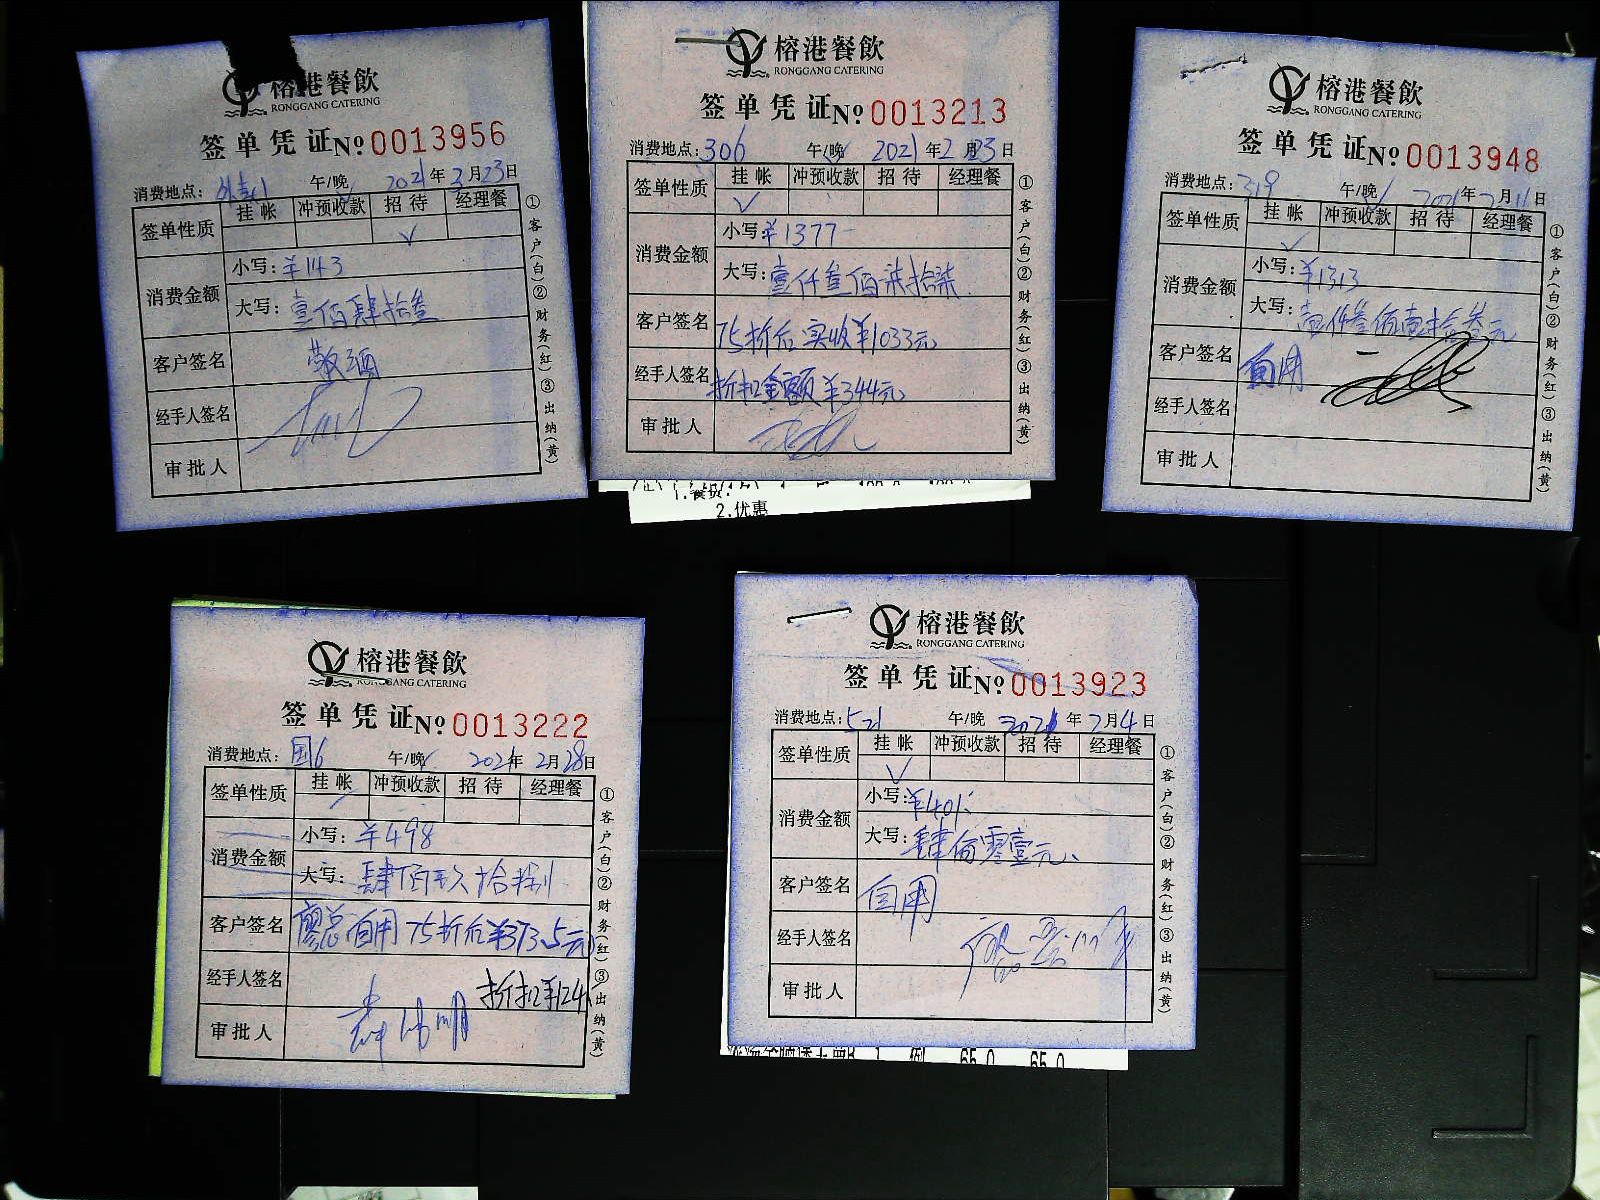 榕港餐飲
RONGGANG CATERING
签单凭证 № 0013956
消费地点: 午/晚 2021年2月23日
签单性质 挂帐 冲预收款 招待 经理餐
✓
消费金额
小写: ¥143
大写: 壹佰肆拾叁
客户签名 敬酒
经手人签名
审批人
①客户(白)②财务(红)③出纳(黄)
榕港餐飲
RONGGANG CATERING
签单凭证 № 0013213
消费地点: 306 午/晚 2021年2月23日
签单性质 挂帐 冲预收款 招待 经理餐
✓
消费金额
小写 ¥1377-
大写: 壹仟叁佰柒拾柒
客户签名 75折后实收¥1033元
经手人签名 折扣金额¥344元
审批人
①客户(白)②财务(红)③出纳(黄)
1.餐费:
2.优惠
榕港餐飲
RONGGANG CATERING
签单凭证 № 0013948
消费地点: 319 午/晚 2021年2月11日
签单性质 挂帐 冲预收款 招待 经理餐
✓
消费金额
小写: ¥1313
大写: 壹仟叁佰壹拾叁元
客户签名 自用
经手人签名
审批人
①客户(白)②财务(红)③出纳(黄)
榕港餐飲
RONGGANG CATERING
签单凭证 № 0013222
消费地点: 国6 午/晚 2021年2月28日
签单性质 挂帐 冲预收款 招待 经理餐
消费金额
小写: ¥498
大写: 肆佰玖拾捌
客户签名 廖总自用 75折后¥373.5元
经手人签名 折扣¥124.5
审批人
①客户(白)②财务(红)③出纳(黄)
榕港餐飲
RONGGANG CATERING
签单凭证 № 0013923
消费地点: 521 午/晚 2021年2月4日
签单性质 挂帐 冲预收款 招待 经理餐
✓
消费金额
小写: ¥401
大写: 肆佰零壹元
客户签名 自用
经手人签名
审批人
①客户(白)②财务(红)③出纳(黄)
1 例 65.0 65.0